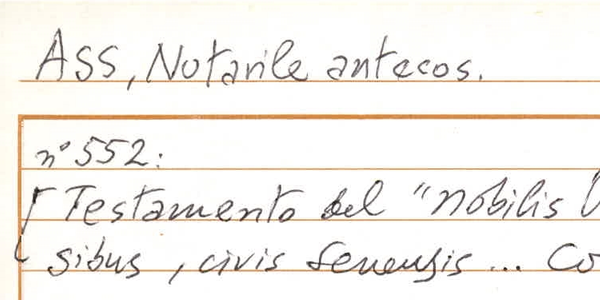 ASS, Notarile antecos.
n° 552:
[Testamento del "nobilis
sibus, civis senensis ... Co